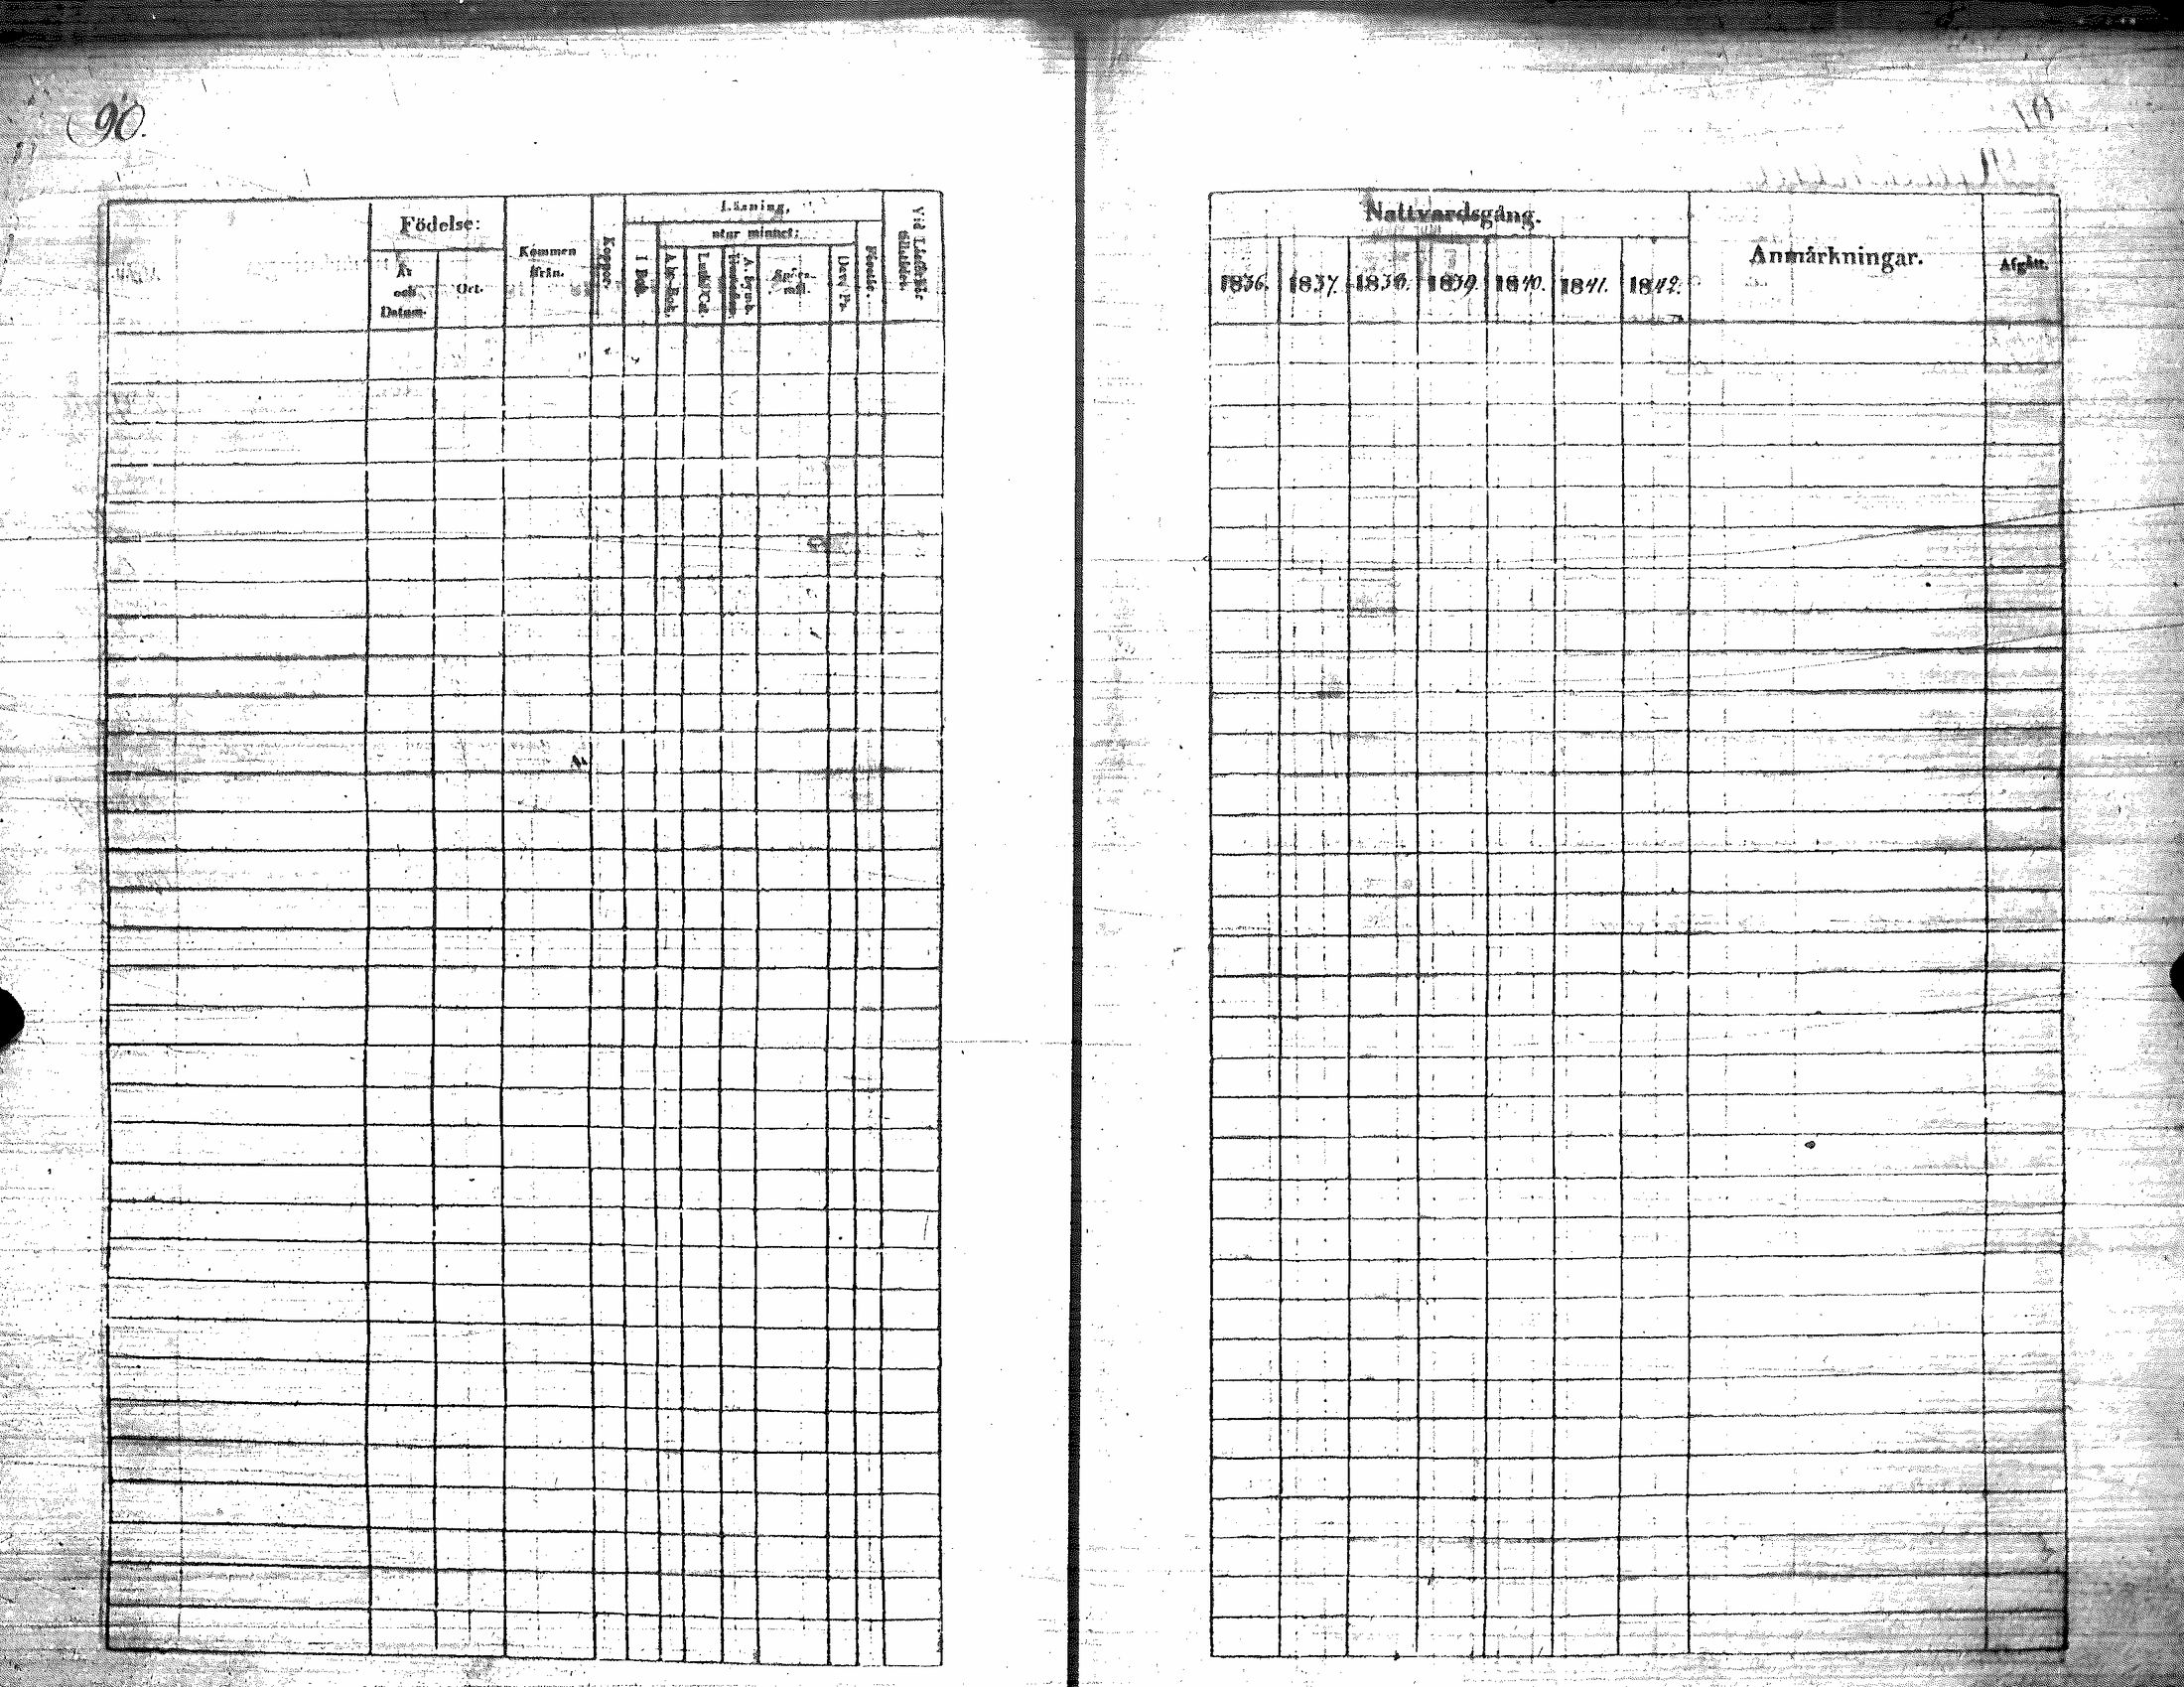 90.
Födelse:
År
och
Datum.
Ort.
Kommen
ifrån.
Koppor.
Läsning,
I Bok.
utur minnet:
A b c-Bok.
Luth. Cat.
Spörs-
mål.
Dav. Ps.
Förstår.
Vid Läsförhör
tillstädes.
Nattvardsgång.
1836. 1837. 1838. 1839. 1840. 1841. 1842.
Anmärkningar.
Afgått.